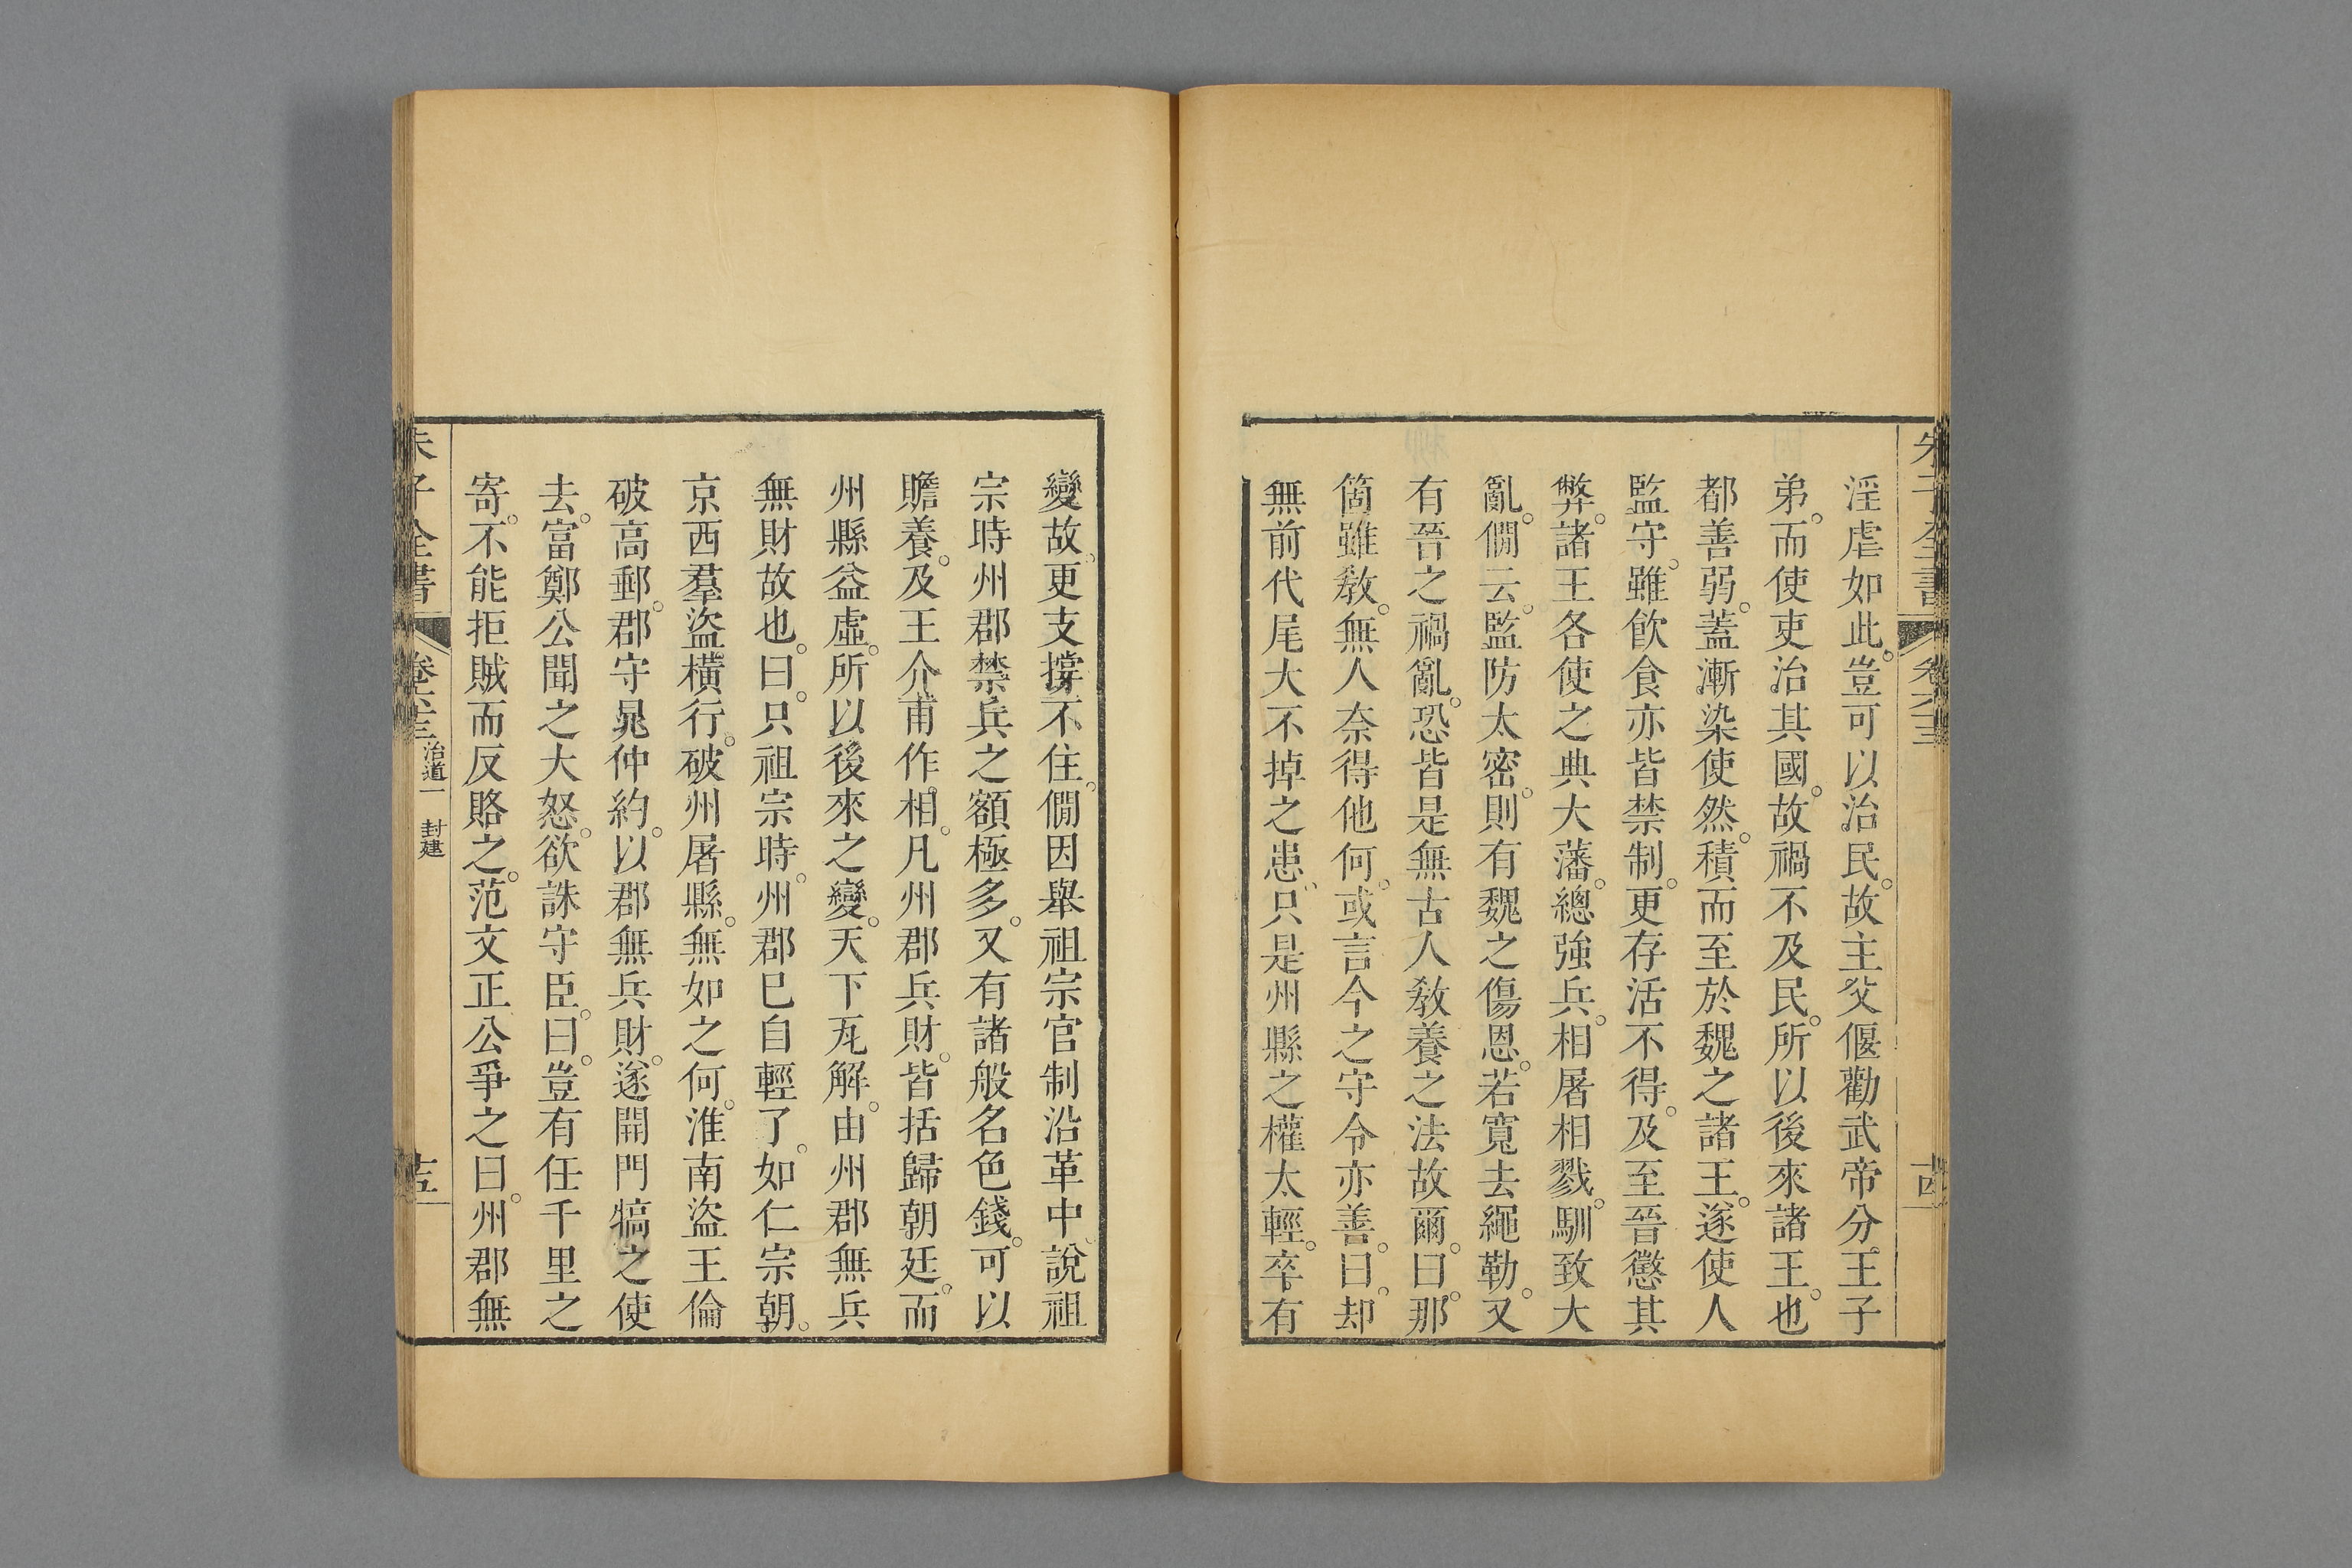 朱子全書 卷六十三 十四
淫虐如此。豈可以治民。故主父偃勸武帝分王子
弟。而使吏治其國。故禍不及民。所以後來諸王。也
都善弱。蓋漸染使然。積而至於魏之諸王。遂使人
監守。雖飮食亦皆禁制。更存活不得。及至晉懲其
弊。諸王各使之典大藩。總強兵。相屠相戮。馴致大
亂。僩云。監防太密。則有魏之傷恩。若寬去繩勒。又
有晉之禍亂。恐皆是無古人敎養之法故爾。曰。那
箇雖敎。無人奈得他何。或言今之守令亦善。曰。却
無前代尾大不掉之患。只是州縣之權太輕。卒有
變故。更支撐不住。僩因舉祖宗官制沿革中。說祖
宗時州郡禁兵之額極多。又有諸般名色錢。可以
贍養。及王介甫作相。凡州郡兵財。皆括歸朝廷。而
州縣益虛。所以後來之變。天下瓦解。由州郡無兵
無財故也。曰。只祖宗時。州郡已自輕了。如仁宗朝。
京西羣盜橫行。破州屠縣。無如之何。淮南盜王倫
破高郵。郡守晁仲約。以郡無兵財。遂開門犒之使
去。富鄭公聞之大怒。欲誅守臣。曰。豈有任千里之
寄。不能拒賊而反賂之。范文正公爭之曰。州郡無
朱子全書 卷六十三 治道一 封建 十五